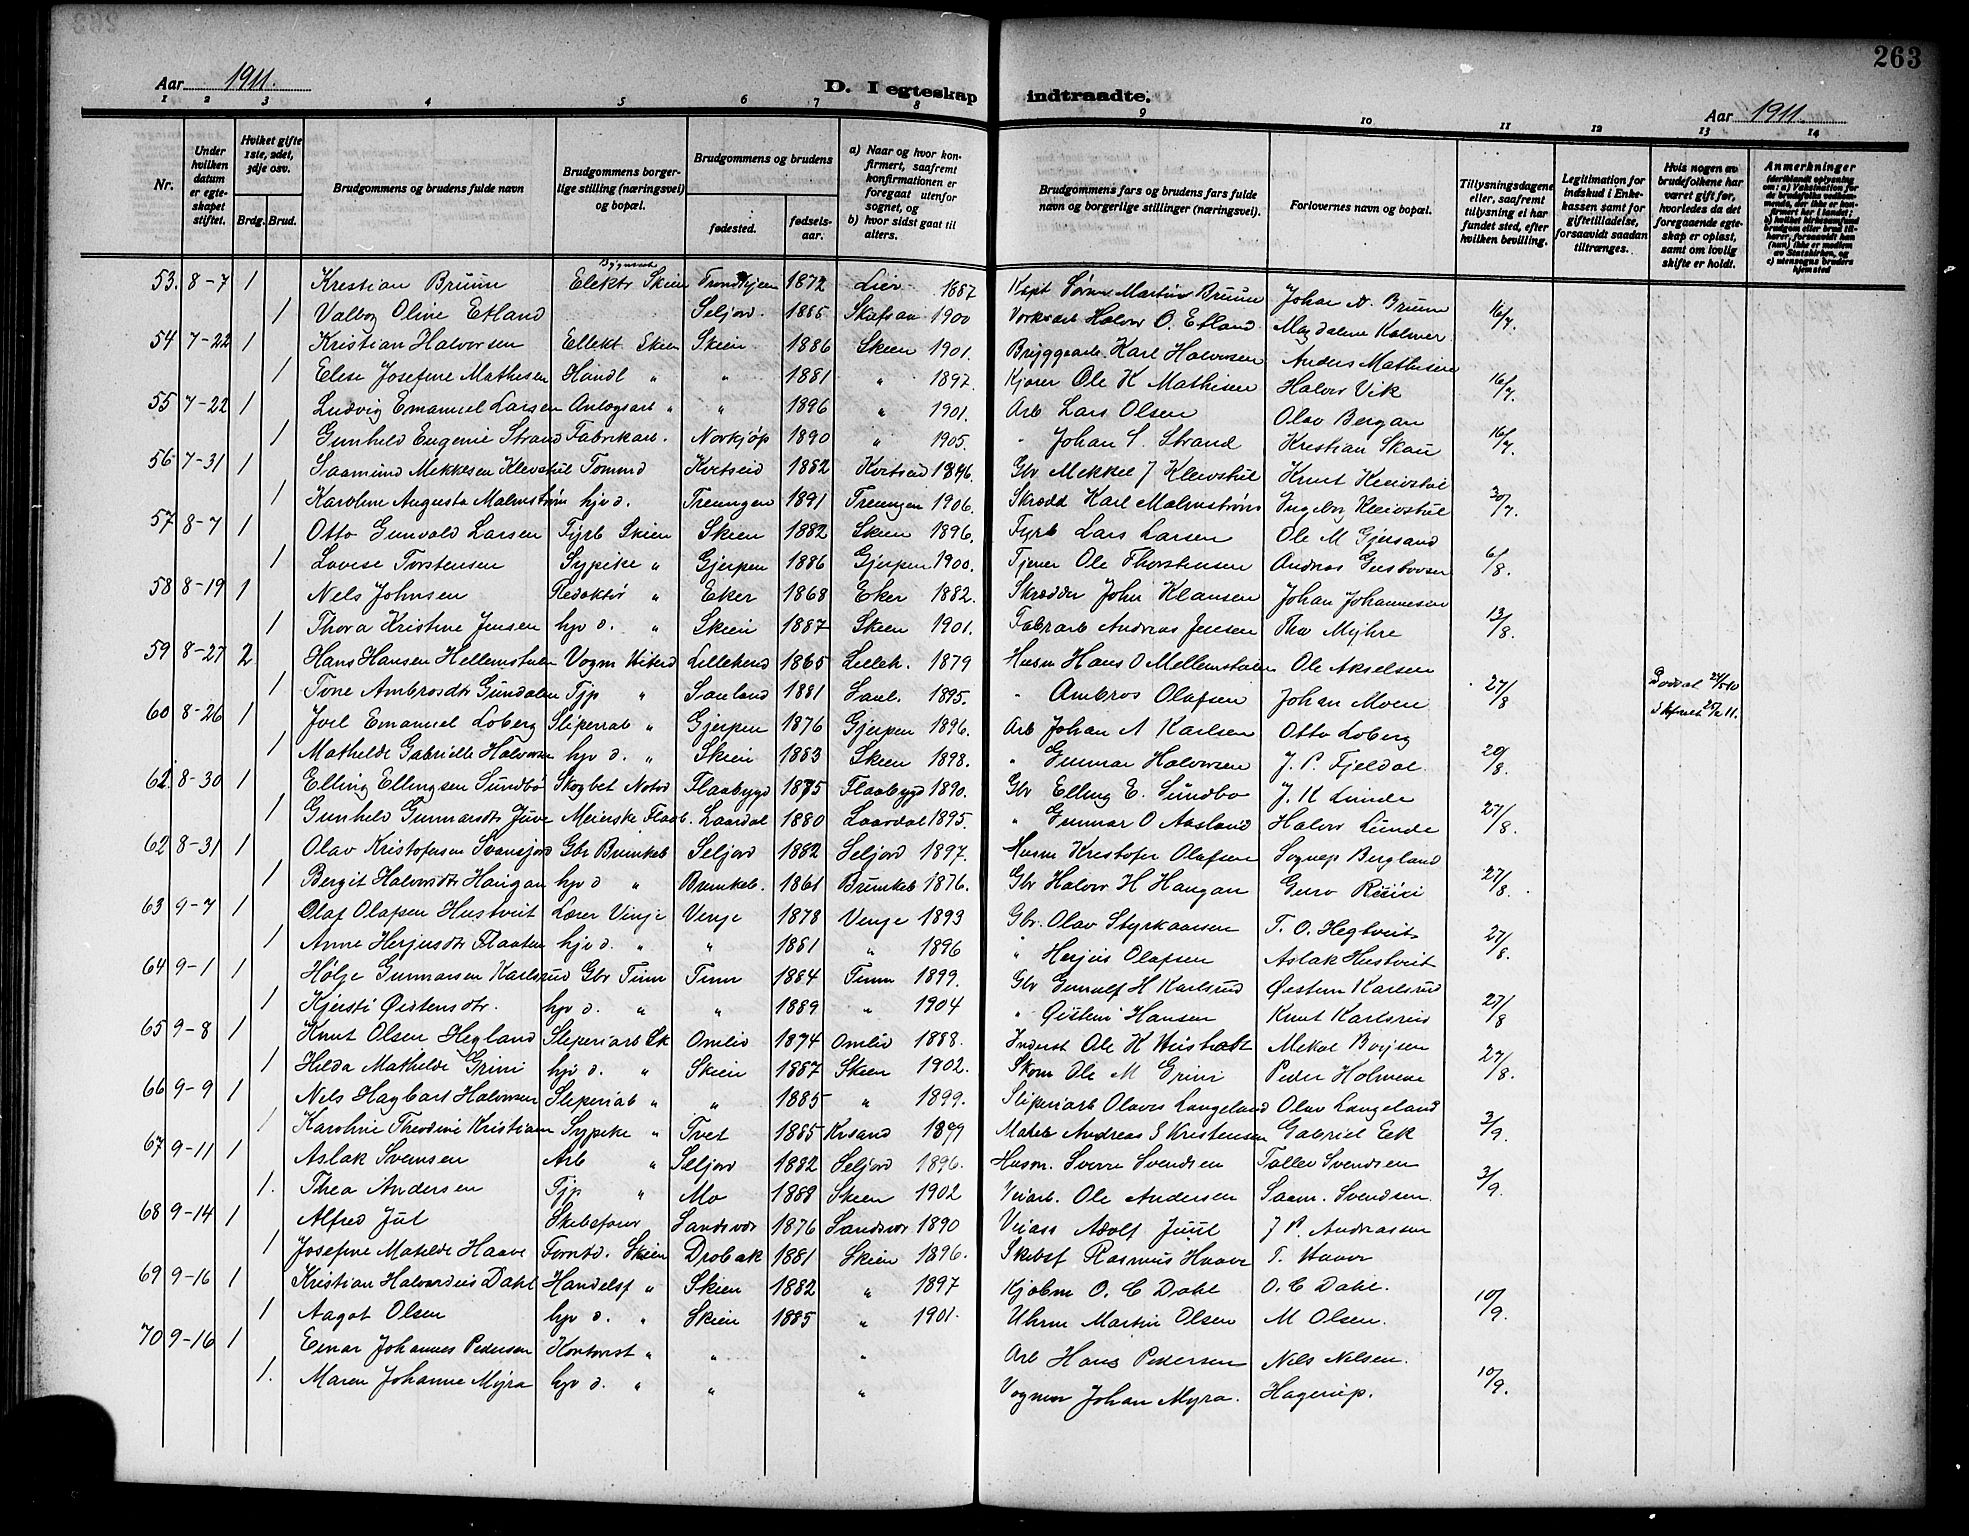 263
Aar 1911. D. I egteskap indtraadte. Aar 1911.
1 2 3 4 5 6 7 8 9 10 11 12 13 14
Nr.
Under hvilken datum er egteskapet stiftet.
Hvilket gifte 1ste, 2det, 3dje osv.
Brdg. Brud.
Brudgommens og brudens fulde navn
Brudgommens borgerlige stilling (næringsvei) og bopæl.
Brudgommens og brudens
fødested. fødselsaar.
a) Naar og hvor konfirmert, saafremt konfirmationen er foregaat utenfor sognet, og b) hvor sidst gaat til alters.
Brudgommens fars og brudens fars fulde navn og borgerlige stillinger (næringsvei).
Forlovernes navn og bopæl.
Tillysningsdagene eller, saafremt tillysning ei har fundet sted, efter hvilken bevilling.
Legitimation for indskud i Enkekassen samt for giftetilladelse, forsaavidt saadan tiltrænges.
Hvis nogen av brudefolkene har været gift før, hvorledes da det foregaaende egteskap er opløst, samt om lovlig skifte er holdt.
Anmerkninger
53. 8-7 1 Kristian Bruun Elektr Skien Trondhjem 1872 Lier 1887 Kapt Søren Martin Bruun Johan N. Bruun
1 Valbog Olive Etland Seljord. 1885 Skafsaa 1900 Verksarb Halvor O. Etland Magdalene Kolmer 16/7.
54 7-22 1 Kristian Halvorsen Ellekt. Skien Skien 1886 Skien 1901. Bryggearb. Karl Halvorsen Anders Mathisen
1 Elise Josefine Mathisen Handl " " 1881 " 1897. Kjører Ole K Mathisen Halvor Vik 16/7.
55 7-22 1 Ludvig Emanuel Larsen Anlægsarb " " 1896 " 1901. Arb Lars Olsen Olav Bergan
1 Gunhild Eugenie Strand Fabrikarb. Norkjøp 1890 " 1905. " Johan S. Strand Kristian Skau 16/7.
56 7-31 1 Saamund Mekkelsen Kleivstul Tømmd Kvitseid 1882 Kvitseid 1896. Gbr Mekkel J Kleivstul Knut Kleivstul
1 Karoline Augusta Malmstrøm hjv d. Treungen 1891 Treungen 1906. Skrædd Karl Malmstrøm Ingeborg Kleivstul 30/7.
57 8-7 1 Otto Gunvald Larsen Fyrb Skien Skien 1882 Skien 1896. Fyrb Lars Larsen Ole M Gjersand
1 Lovise Torstensen Sypike " Gjerpen 1886 Gjerpen 1900. Tjener Ole Thorstensen Andreas Gustavsen 6/8.
58 8-19 1 Nels Johnsen Redaktør " Eker 1868 Eker 1882. Skrædder John Klausen Johan Johannesen
1 Thora Kristine Jensen hjv d. " Skien 1887 Skien 1901. Fabrarb Andreas Jensen Tha Myhre 13/8.
59 8-27 2 Hans Hansen Hellemstuen Vogm Hiterd Lilleherad 1865 Lilleh. 1879 Husm Hans O Mellemstuen Ole Akselsen
1 Tone Ambrosdtr Gundalen Tjp " Sauland 1881 Saul. 1895. " Ambros Olafsen Johan Moen 27/8
60 8-26 1 Joel Emanuel Loberg Sliperiab " Gjerpen 1876 Gjerpen 1896. Arb Johan A Karlsen Otto Loberg
1 Mathilde Gabrielle Halvorsen hjv d. " Skien 1883 Skien 1898. " Gunnar Halvorsen J. P. Fjeldal 20/8.
62 8-30 1 Elling Ellingsen Sundbø Skogbet Notod Flaabygd 1875 Flaabygd 1890. Gbr Elling E. Sundbo J. K Lunde
1 Gunhild Gunnarsdtr Juve Meierske Flaab. Laardal 1880 Laardal 1895. " Gunnar O Aasland Halvor Lunde 27/8.
62 8-31 1 Olav Kristofersen Svansjord Gbr Brunkeb Seljord 1882 Seljord 1897. Husm Kristofer Olafsen Bergland
1 Bergit Halvorsdtr Haugan hjv d " Brunkeb. 1861 Brunkeb 1876. Gbr Halvor H Haugan Guro 27/8.
63 9-7 1 Olaf Olafsen Hustveit Lærer Vinje Vinje 1878 Vinje 1893 Gbr. Olav Styrkaarsen T. O. Hegtveit
1 Anne Herjusdtr Flaaten hjv d. " " 1881 " 1896 " Herjus Olafsen Aslak Hustveit 27/8.
64 9-1 1 Hølje Gunnarsen Karlsrud Gbr Tinn Tinn 1884 Tinn 1899. Gbr Gunulf H Karlsrud Øistein Karlsrud
1 Kjersti Øistensdtr. hjv d. " " 1889 " 1904 " Øistein Hansen Knut Karlsrud 27/8
65 9-8 1 Knut Olsen Hegland Sliperiarb Sk Omlid 1874 Omlid 1888. Inderst Ole K Mekal Borjsen
1 Hilda Mathilde Grini hjv d. " Skien 1887 Skien 1902. Skom Ole M Grini Peder Holmene 27/8.
66 9-9 1 Nels Hagbart Halvorsen Sliperiab " " 1885 " 1899. Sliperiarb Olaves Langeland Olav Langeland
1 Karoline Theodine Kristiansen Sypike " Tvet 1885 Krsand 1899 Matr Andreas S Kristensen Gabriel Eek 3/9.
67 9-11 1 Aslak Svensen Arb " Seljord 1882 Seljord 1896. Husm. Sverre Svendsen Tallev Svendsen
1. Thea Andersen Tjp " Mo 1888 Skien 1902 Veiarb. Ole Andersen Saam. Svendsen. 3/9.
68 9-14 1 Alfred Jul Skibsfører Sandsvær 1876 Sandsvær 1890 Veiass Adolf Juul J P. Andreassen
1 Josefine Matilde Haave Forntd. Skien Drobak 1881 Skien 1896. Skibsf Rasmus Haave T. Haave
69 9-16 1 Kristian Halvardius Dahl Handelsf " Skien 1882 " 1897 Kjøbm O. C Dahl O. C Dahl.
1 Aagot Olsen hjv d. " Skien 1885 " 1901. Uhrm Martin Olsen M Olsen. 10/9.
70 9-16 1 Einar Johannes Pedersen Kontorist " " " Arb Hans Pedersen Nels Nelsen.
1. Maren Johanne Myra hjv d. " " " Vognm Johan Myra. Hagerup. 10/9.